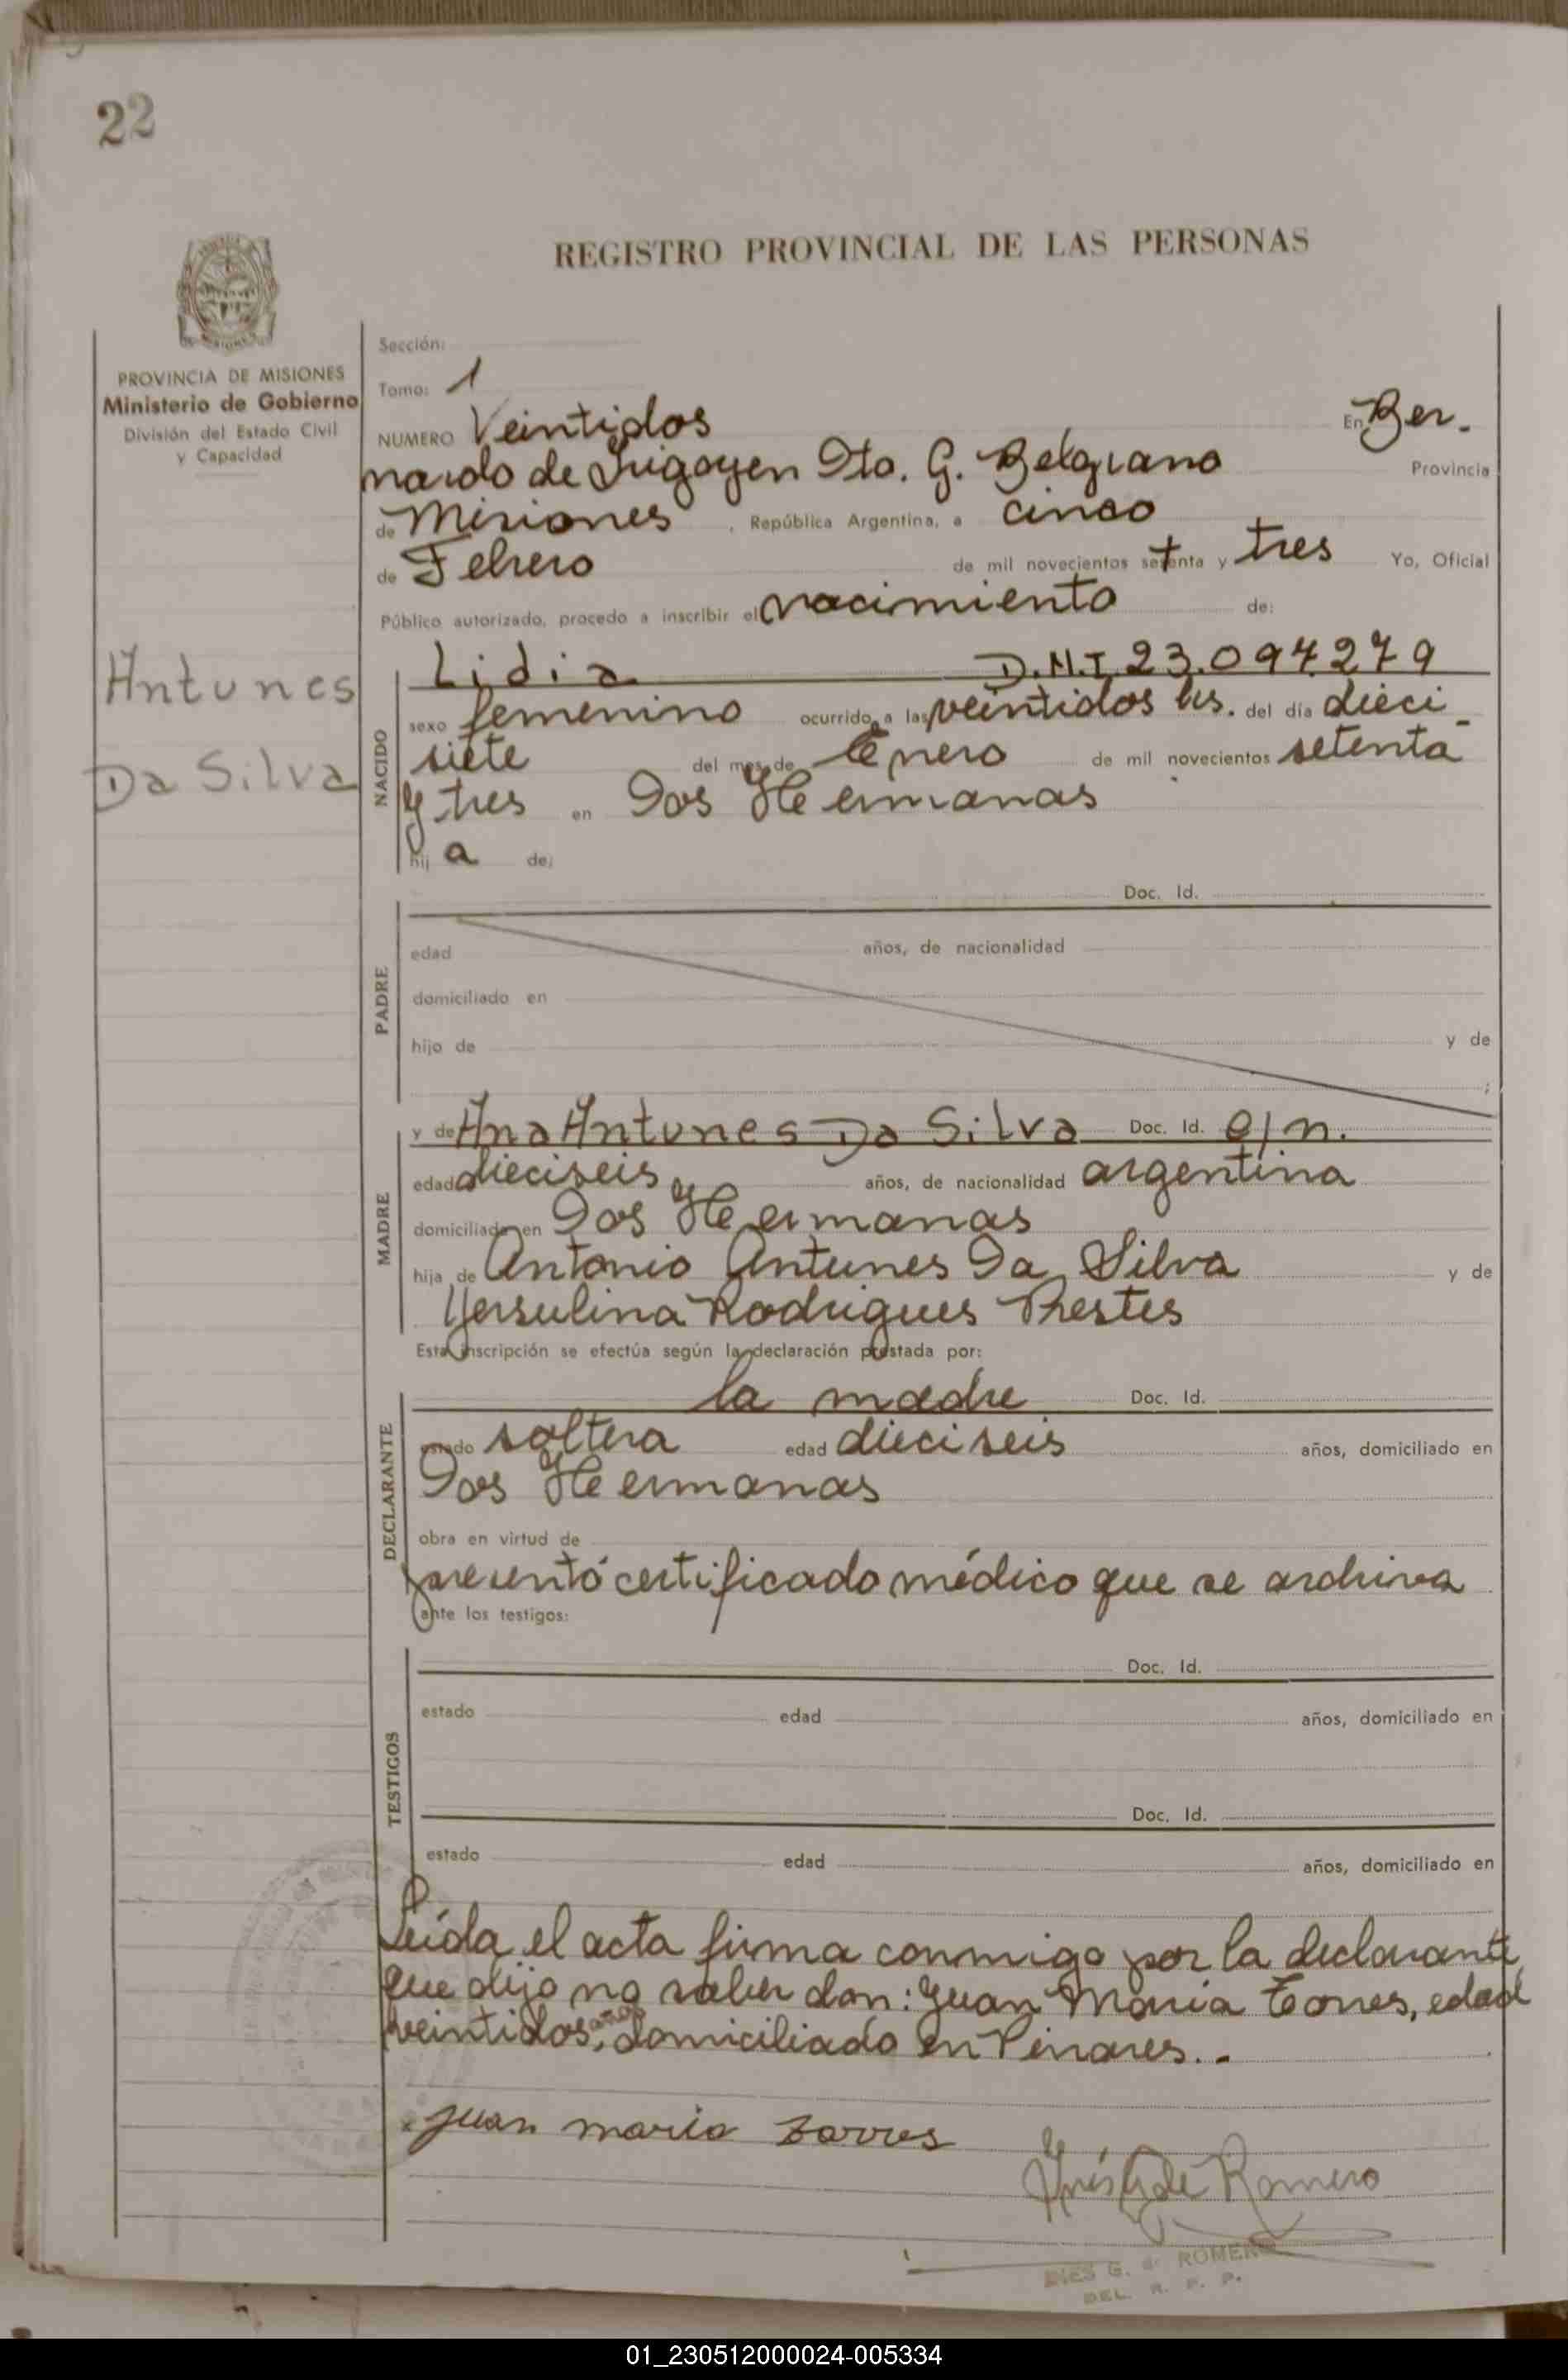 22
REGISTRO PROVINCIAL DE LAS PERSONAS
PROVINCIA DE MISIONES
Ministerio de Gobierno
División del Estado Civil
y Capacidad
Antunes
Da Silva
Sección:
Tomo: 1
NUMERO Veintidos En Ber-
nardo de Irigoyen Dto. G. Belgrano Provincia
de Misiones, República Argentina, a cinco
de Febrero de mil novecientos setenta y tres Yo, Oficial
Público autorizado, procedo a inscribir el nacimiento de:
NACIDO
Lidia D.N.I 23.094.279
sexo femenino ocurrido a las veintidos hs. del día dieci-
siete del mes de Enero de mil novecientos setenta
y tres en Dos Hermanas
hij a de:
PADRE
Doc. Id.
edad años, de nacionalidad
domiciliado en
hijo de y de
;
MADRE
y de Ana Antunes Da Silva Doc. Id.
edad dieciseis años, de nacionalidad argentina
domiciliada en Dos Hermanas
hija de Antonio Antunes Da Silva y de
Yersulina Rodrigues Prestes
Esta inscripción se efectúa según la declaración prestada por:
DECLARANTE
la madre Doc. Id.
estado soltera edad dieciseis años, domiciliado en
Dos Hermanas
obra en virtud de
presentó certificado médico que se archiva
ante los testigos:
TESTIGOS
Doc. Id.
estado edad años, domiciliado en
Doc. Id.
estado edad años, domiciliado en
Leída el acta firma conmigo por la declarante
que dijo no saber don: Juan Maria Torres, edad
veintidos años, domiciliado en Pinares.-
Juan maria Torres
Inés G de Romero
INES G. de ROMERO
DEL. R. P. P.
01_230512000024-005334